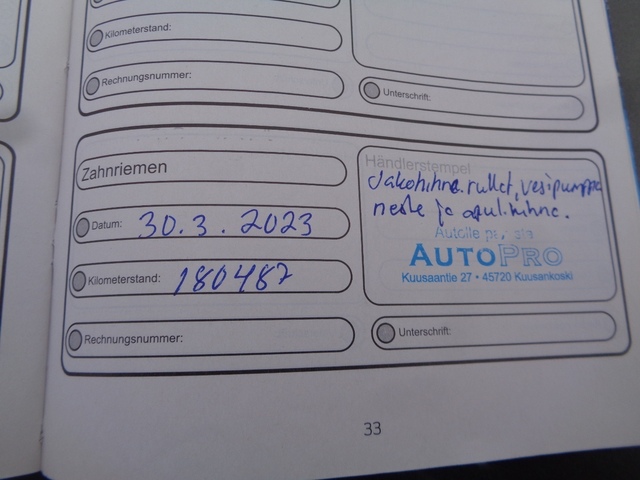 Kilometerstand:
Rechnungsnummer:
Unterschrift:
Zahnriemen
Datum: 30.3.2023
Kilometerstand: 180487
Rechnungsnummer:
Händlerstempel
Jakohihna. rullat, vesipumppu
neste ja apul.hihna.
Autolle
AUTOPRO
Kuusaantie 27 • 45720 Kuusankoski
Unterschrift:
33